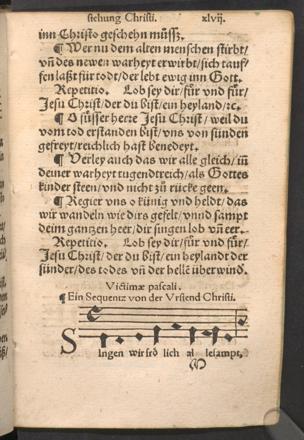 stehung Christi. xlvij.
inn Christo geschehn müssz.
¶ Wer nu dem alten menschen stirbt/
vñ des newen warheyt erwirbt/sich tauf/
fen laßt für todt/der lebt ewig inn Gott.
Repetitio. Lob sey dir/für vnd für/
Jesu Christ/der du bist/ein heyland/ꝛc.
¶ O süsser herre Jesu Christ/weil du
vom tod erstanden bist/vns von sünden
gefreyt/reichlich hast benedeyt.
¶ Verley auch das wir alle gleich/iñ
deiner warheyt tugendtreich/als Gottes
kinder steen/vnd nicht zů rücke geen.
¶ Regier vns o künig vnd heldt/das
wir wandeln wie dirs gefelt/vnnd sampt
deim gantzen heer/dir singen lob vñ eer.
Repetitio. Lob sey dir/für vnd für/
Jesu Christ/der du bist/ein heylandt der
sünder/des todes vñ der helle überwind.
Victimæ pascali.
¶ Ein Sequentz von der Vrstend Christi.
SIngen wir frö lich al lesampt,